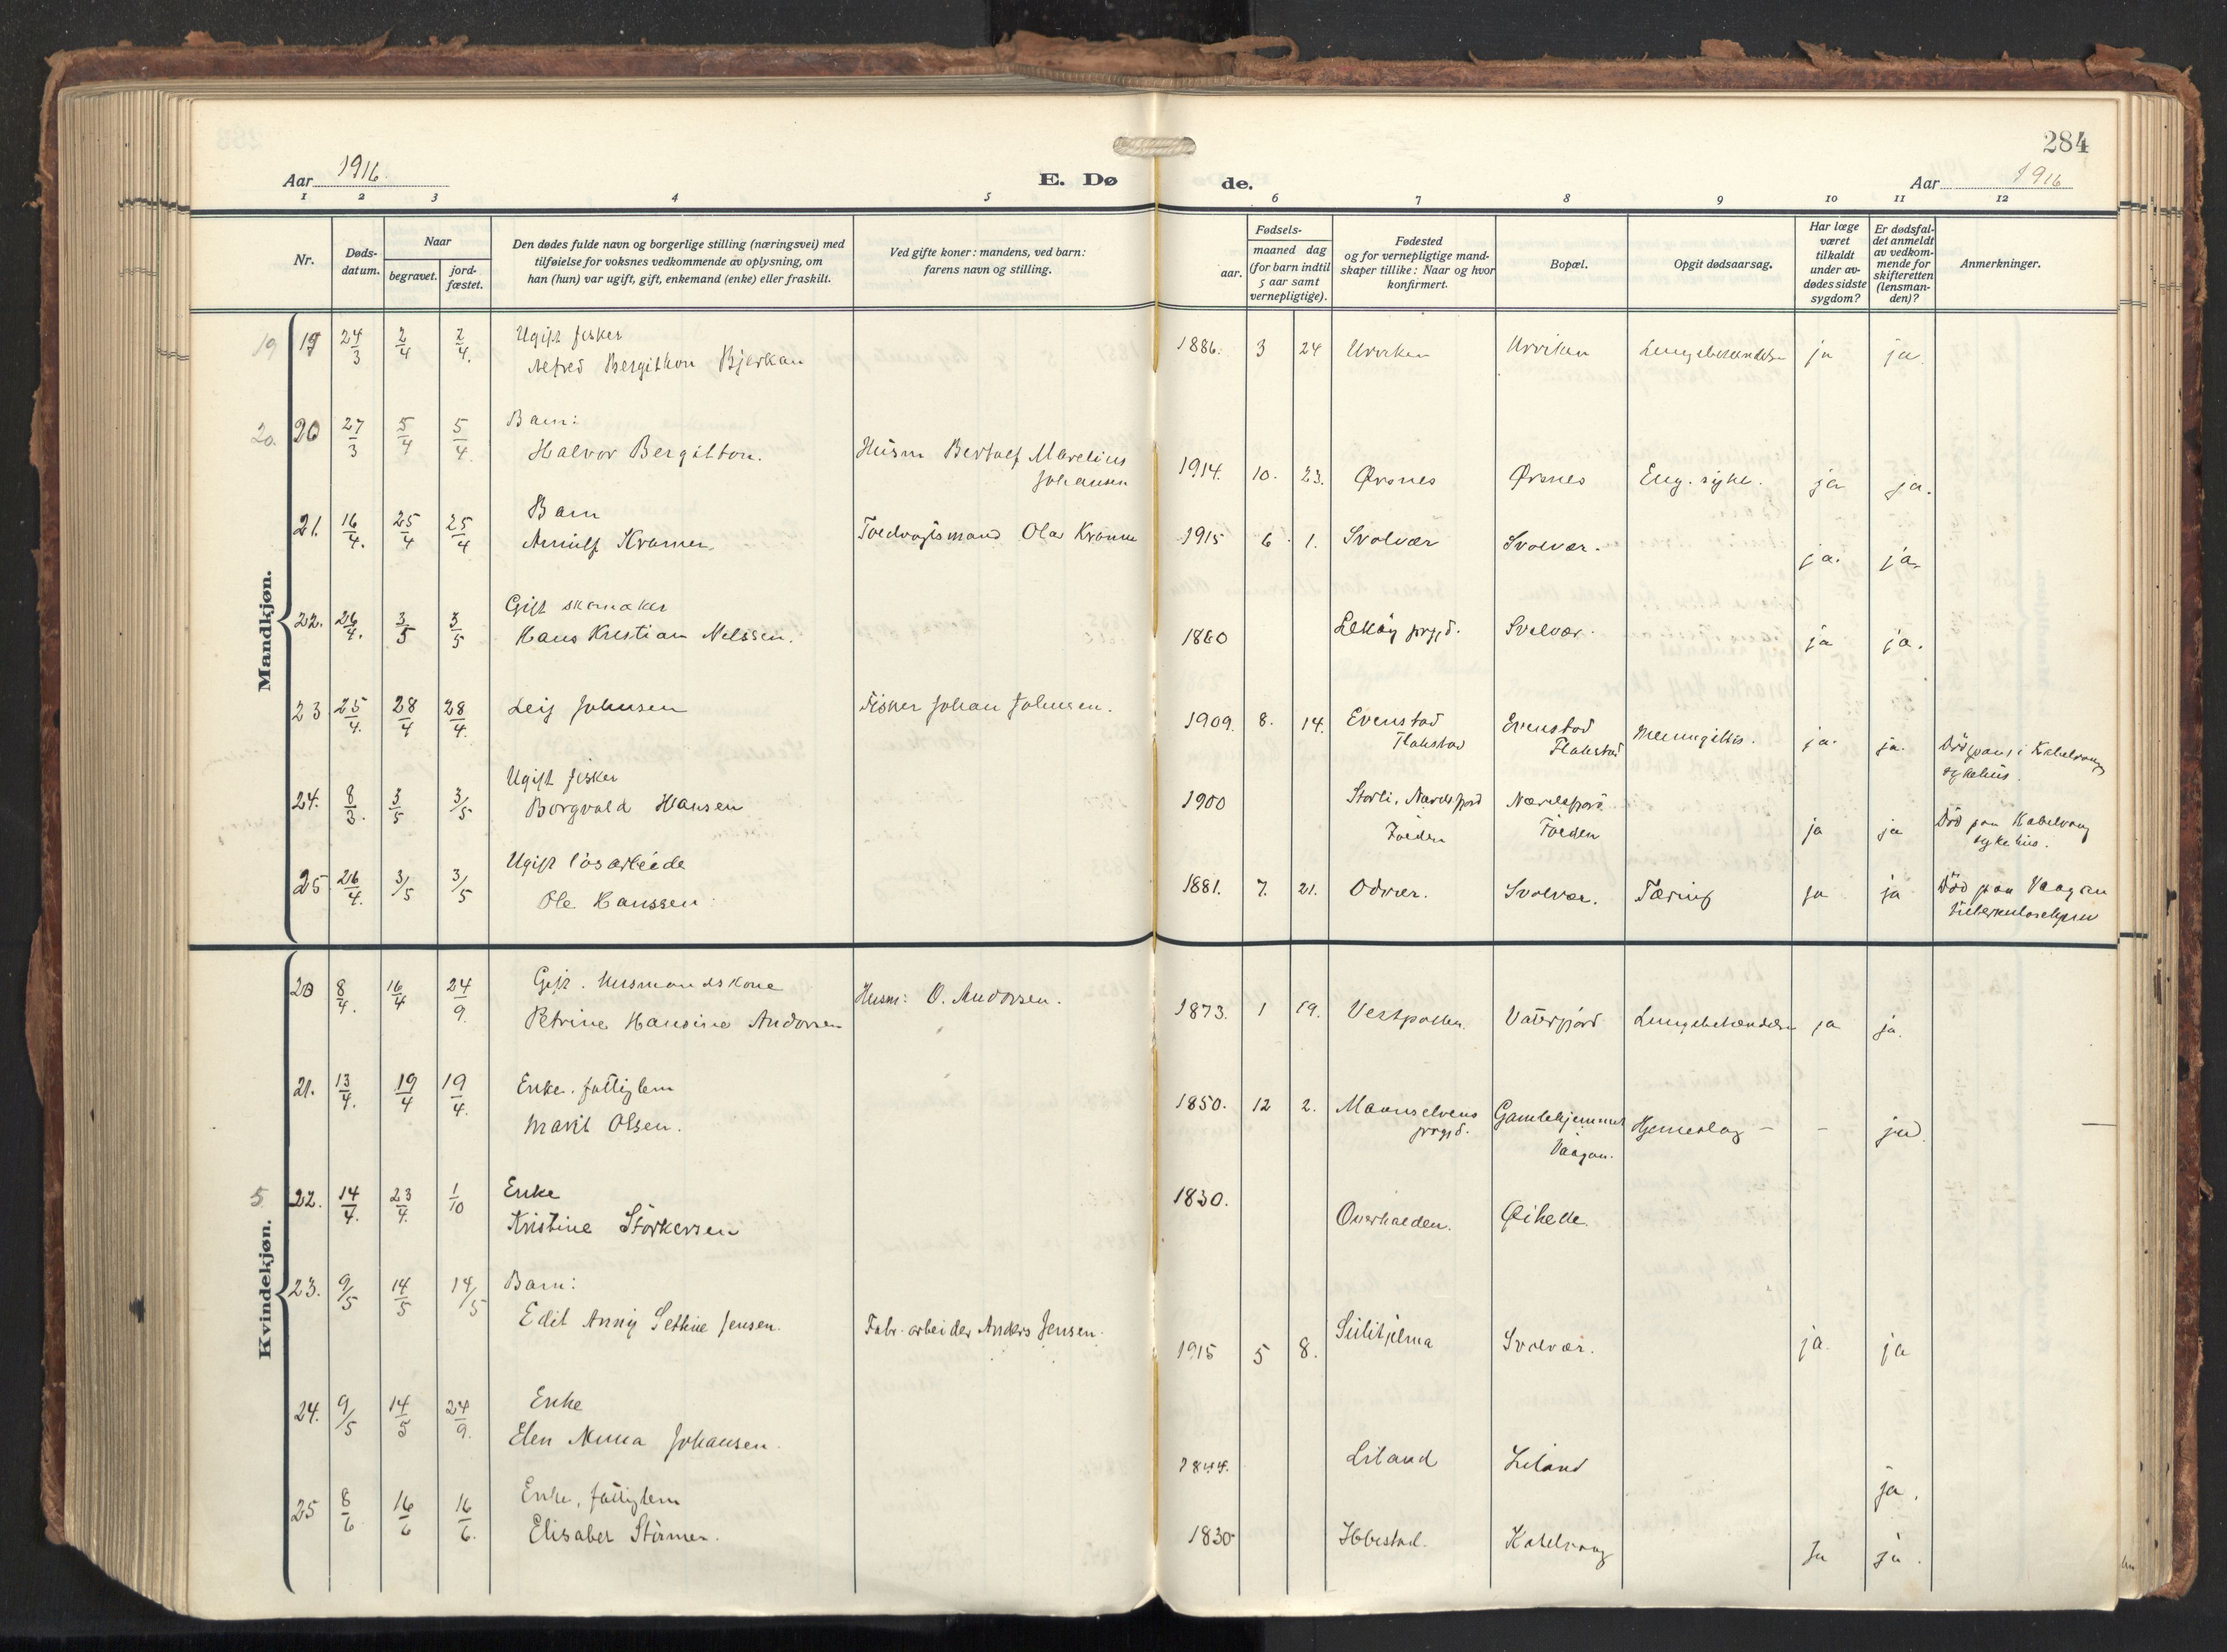 284
Aar 1916
E. Dø
de.
Aar 1916
1 2 3 4 5 6 7 8 9 10 11 12
Nr.
Døds-
datum.
Naar
begravet.
jord-
fæstet.
Den dødes fulde navn og borgerlige stilling (næringsvei) med
tilføielse for voksnes vedkommende av oplysning, om
han (hun) var ugift, gift, enkemand (enke) eller fraskilt.
Ved gifte koner: mandens, ved barn:
farens navn og stilling.
Fødsels-
aar.
maaned dag
(for barn indtil
5 aar samt
vernepligtige).
Fødested
og for vernepligtige mand-
skaper tillike: Naar og hvor
konfirmert.
Bopæl.
Opgit dødsaarsag.
Har læge
været
tilkaldt
under av-
dødes sidste
sygdom?
Er dødsfal-
det anmeldt
av vedkom-
mende for
skifteretten
(lensman-
den)?
Anmerkninger.
Mandkjøn.
19 19 24/3 2/4 2/4. Ugift fisker
Alfred Bergithon Bjerkan
1886. 3 24 Urviken Urviken Lungebetændelse ja ja.
20. 20 27/3 5/4 5/4. Barn:
Halvor Bergitton. Husm Bertulf Marelius
Johansen
1914. 10. 23. Ørsnes Ørsnes Eng. syke. ja ja.
21. 16/4. 25/4 25/4 Barn
Arnulf Kramer. Toldvagtsmand Olav Kramer
1915 6 1. Svolvær Svolvær. ja. ja.
22. 26/4. 3/5 3/5 Gift skomaker
Hans Kristian Nilssen.
1860 Lekøy prgjd. Svolvær. ja ja.
23 25/4. 28/4 28/4. Leif Johnsen Fisker Johan Johnsen.
1909. 8. 14. Evenstad
Flakstad Evenstad
Flakstad Meningittis. ja. ja. Död paa i Kabelvaag
sykehus.
24. 8/3. 3/5 3/5 Ugift fisker
Borgvald Hansen
1900 Storli, Nærdsfjord
Folden Nordsfjord
Folden ja ja Död paa Kabelvaag
sykehus.
25 26/4. 3/5 3/5 Ugift løsarbeide
Ole Hanssen.
1881. 7. 21. Odvær. Svolvær. Tæring ja ja Död paa Vaagan
tuberkulosehjem
Kvindekjøn.
20 8/4. 16/4 24/9 Gift. Husmandskone
Petrine Hansine Andorsen Husm: O. Andorsen.
1873. 1 19. Vestpollen. Vaterfjord Lungebetændelse ja ja.
21. 13/4. 19/4 19/4. Enke. fattiglem
Marit Olsen.
1850. 12 2. Maanselvens
prgjd. Gamlehjemmet
Vaagan. Hjerneslag – – ja
5 22. 14/4. 23/4. 1/10 Enke
Kristine Störkersen
1830. Overhalden. Øihelle.
23. 9/5 14/5 14/5 Barn:
Edit Anny Sethine Jensen. Fabr. arbeider Anders Jensen.
1915 5 8. Sulitjelma Svolvær. ja. ja
24. 9/5 14/5 24/9. Enke
Elen Anna Johansen.
1844. Liland Liland ja.
25 8/6 16/6 16/6. Enke, fattiglem
Elisabet Störmer.
1830 Ibestad. Kabelvaag Ja ja.